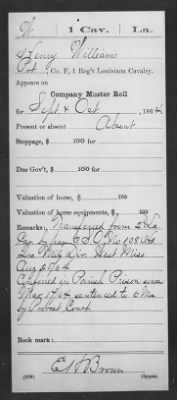 W | 1 Cav. | La.
Henry Williams
Pvt., Co. F, 1 Reg't Louisiana Cavalry.
Appears on
Company Muster Roll
for Sept & Oct, 1864.
Present or absent Absent
Stoppage, $ 100 for
Due Gov't, $ 100 for
Valuation of horse, $ 100
Valuation of horse equipments, $ 100
Remarks: Transferred from 2 La
Cav by S.O. No 108
Div West Miss
Aug 64
Confined in Parish Prison since
64 sentenced to 6 Mo
by Provost Court
Book mark:
Brown
Copyist.